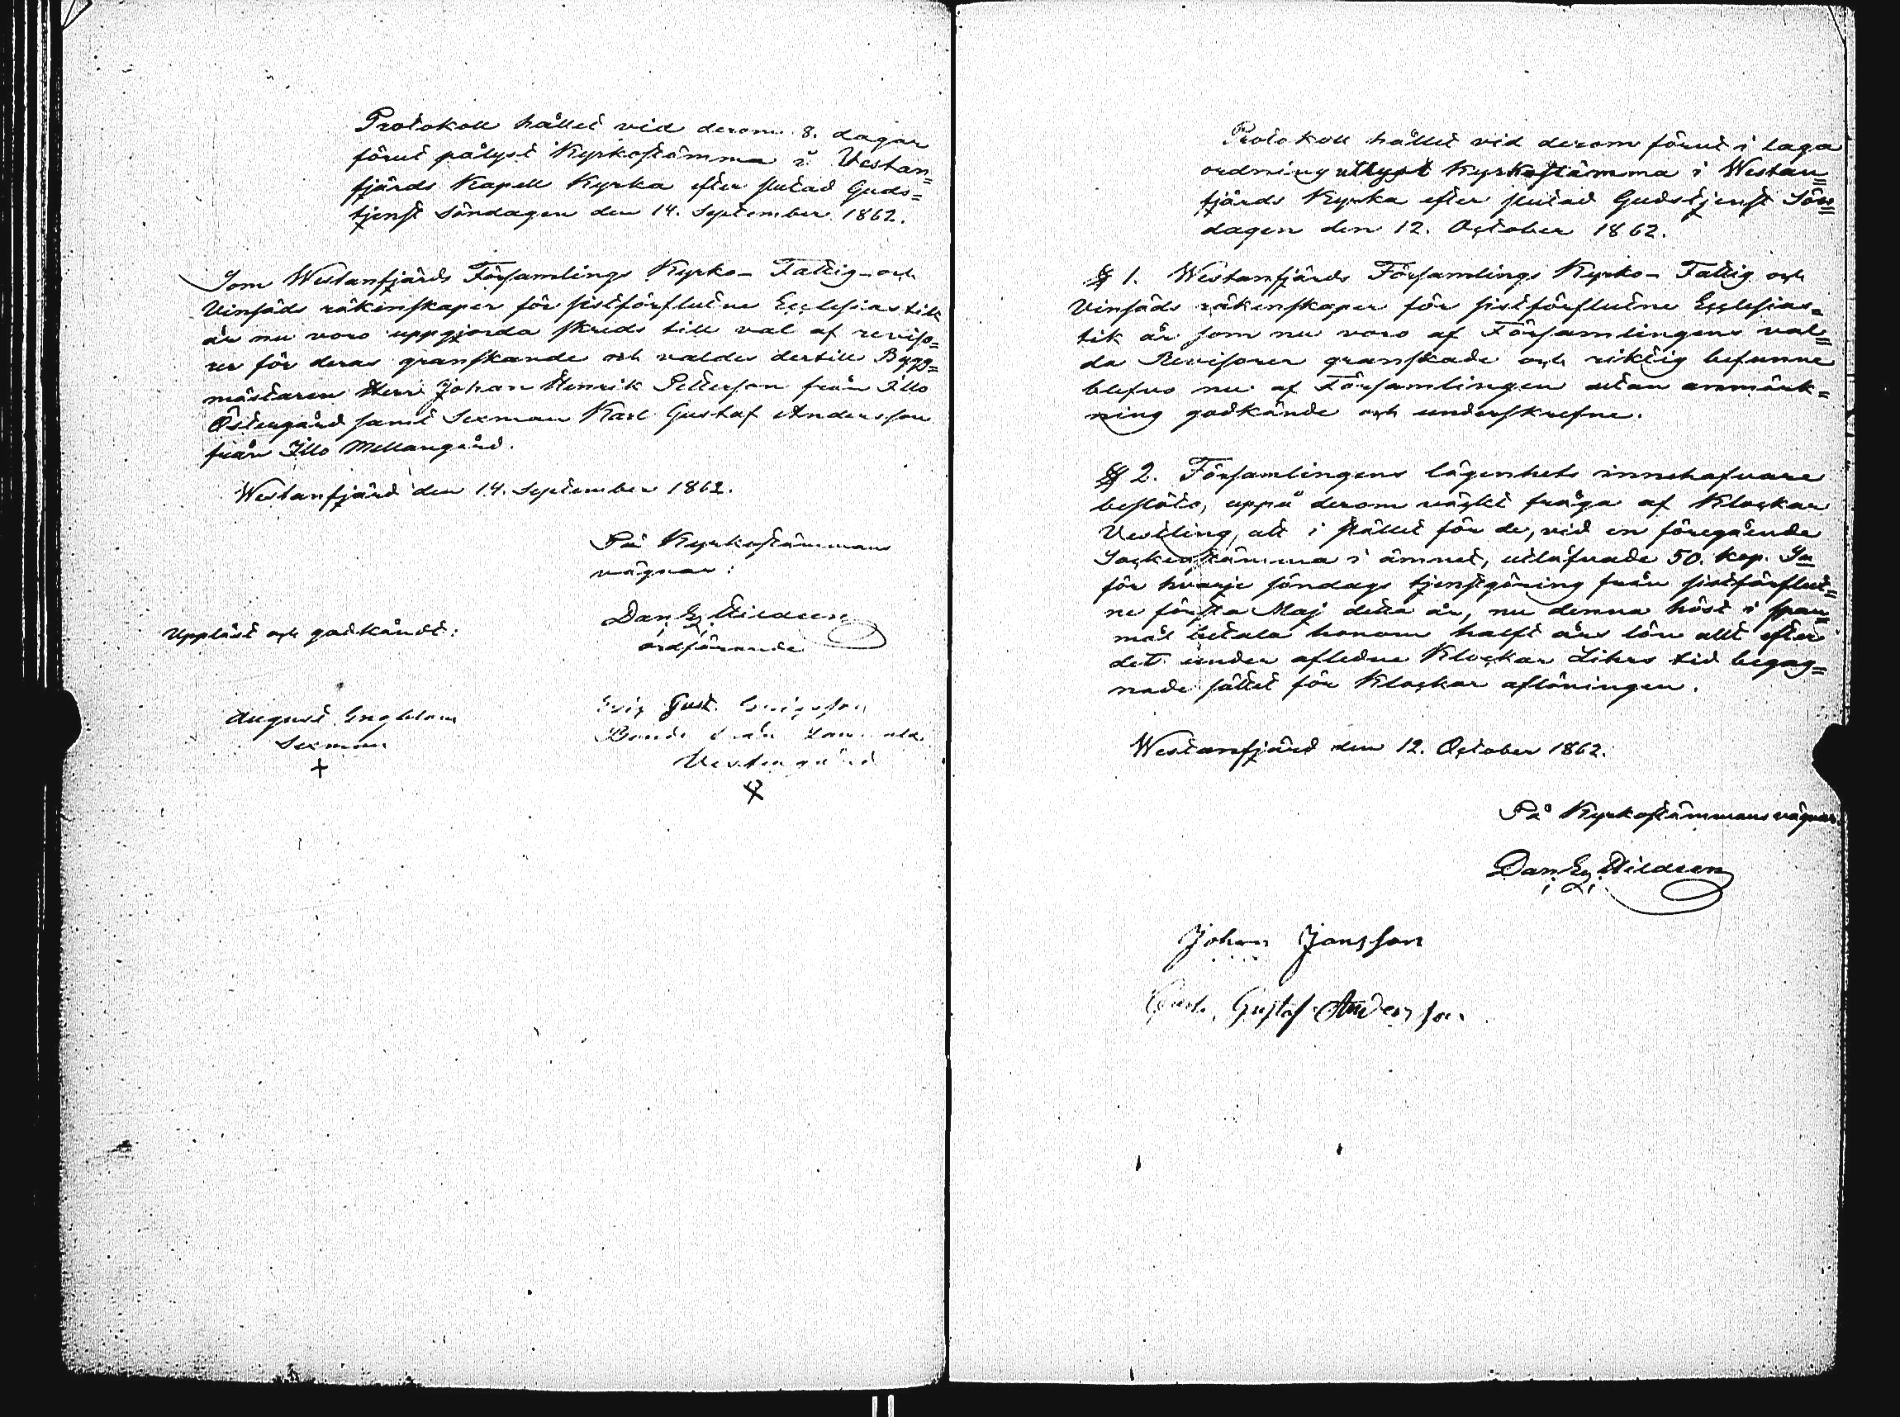 Protokoll hållet vid derom 8. dagar
förut pålyst Kyrkostämma i Vestan=
fjärds Kapell Kyrka efter slutad Guds=
tjenst Söndagen den 14. September 1862.
Som Westanfjärds Församlings Kyrko- Fattig- och
Vinsäds räkenskaper för sistförflutne Ecclesiastik
år nu voro uppgjorda skreds till val af reviso=
rer för deras granskande och valdes dertill Bygg=
mästaren Herr Johan Henrik Petterson från Illo
Östergård samt Sexman Karl Gustaf Andersson
från Illo Mellangård.
Westanfjärd den 14. September 1862.
På Kyrkostämmans
vägnar:
Dan. Ez.
ordförande
Uppläst och godkändt:
August Engblom
Sexman
Gust. Ericsson
Bonde från
Vestergård
Protokoll hållet vid derom förut i laga
ordning utlyst Kyrkostämma i Westan=
fjärds Kyrka efter slutad Gudstjenst Sön=
dagen den 12. October 1862.
§ 1. Westanfjärds Församlings Kyrko- Fattig och
Vinsäds räkenskaper för sistförflutne Ecclesias=
tik år som nu voro af Församlingens val=
da Revisorer granskade och riktig befunne
blefvo nu af Församlingen utan anmärk=
ning godkände och underskrefne.
§ 2. Församlingens lägenhets innehafvare
beslöto, uppå derom väckt fråga af Klockar
Vestling, att i stället för de, vid en föregående
Sockenstämma i ämnet, utlåfvade 50. kop. Sr
för hvarje söndags tjenstgöring från sistförflut=
ne första Maj detta år, nu denna höst i span=
mål betala honom halft års lön allt efter
det under aflidne Klockar Lihrs tid begag=
nade sättet för Klockar aflöningen.
Westanfjärd den 12. October 1862.
På Kyrkostämmans vägnar.
Dan. Ez.
Johan Jansson
Gustaf Andersson